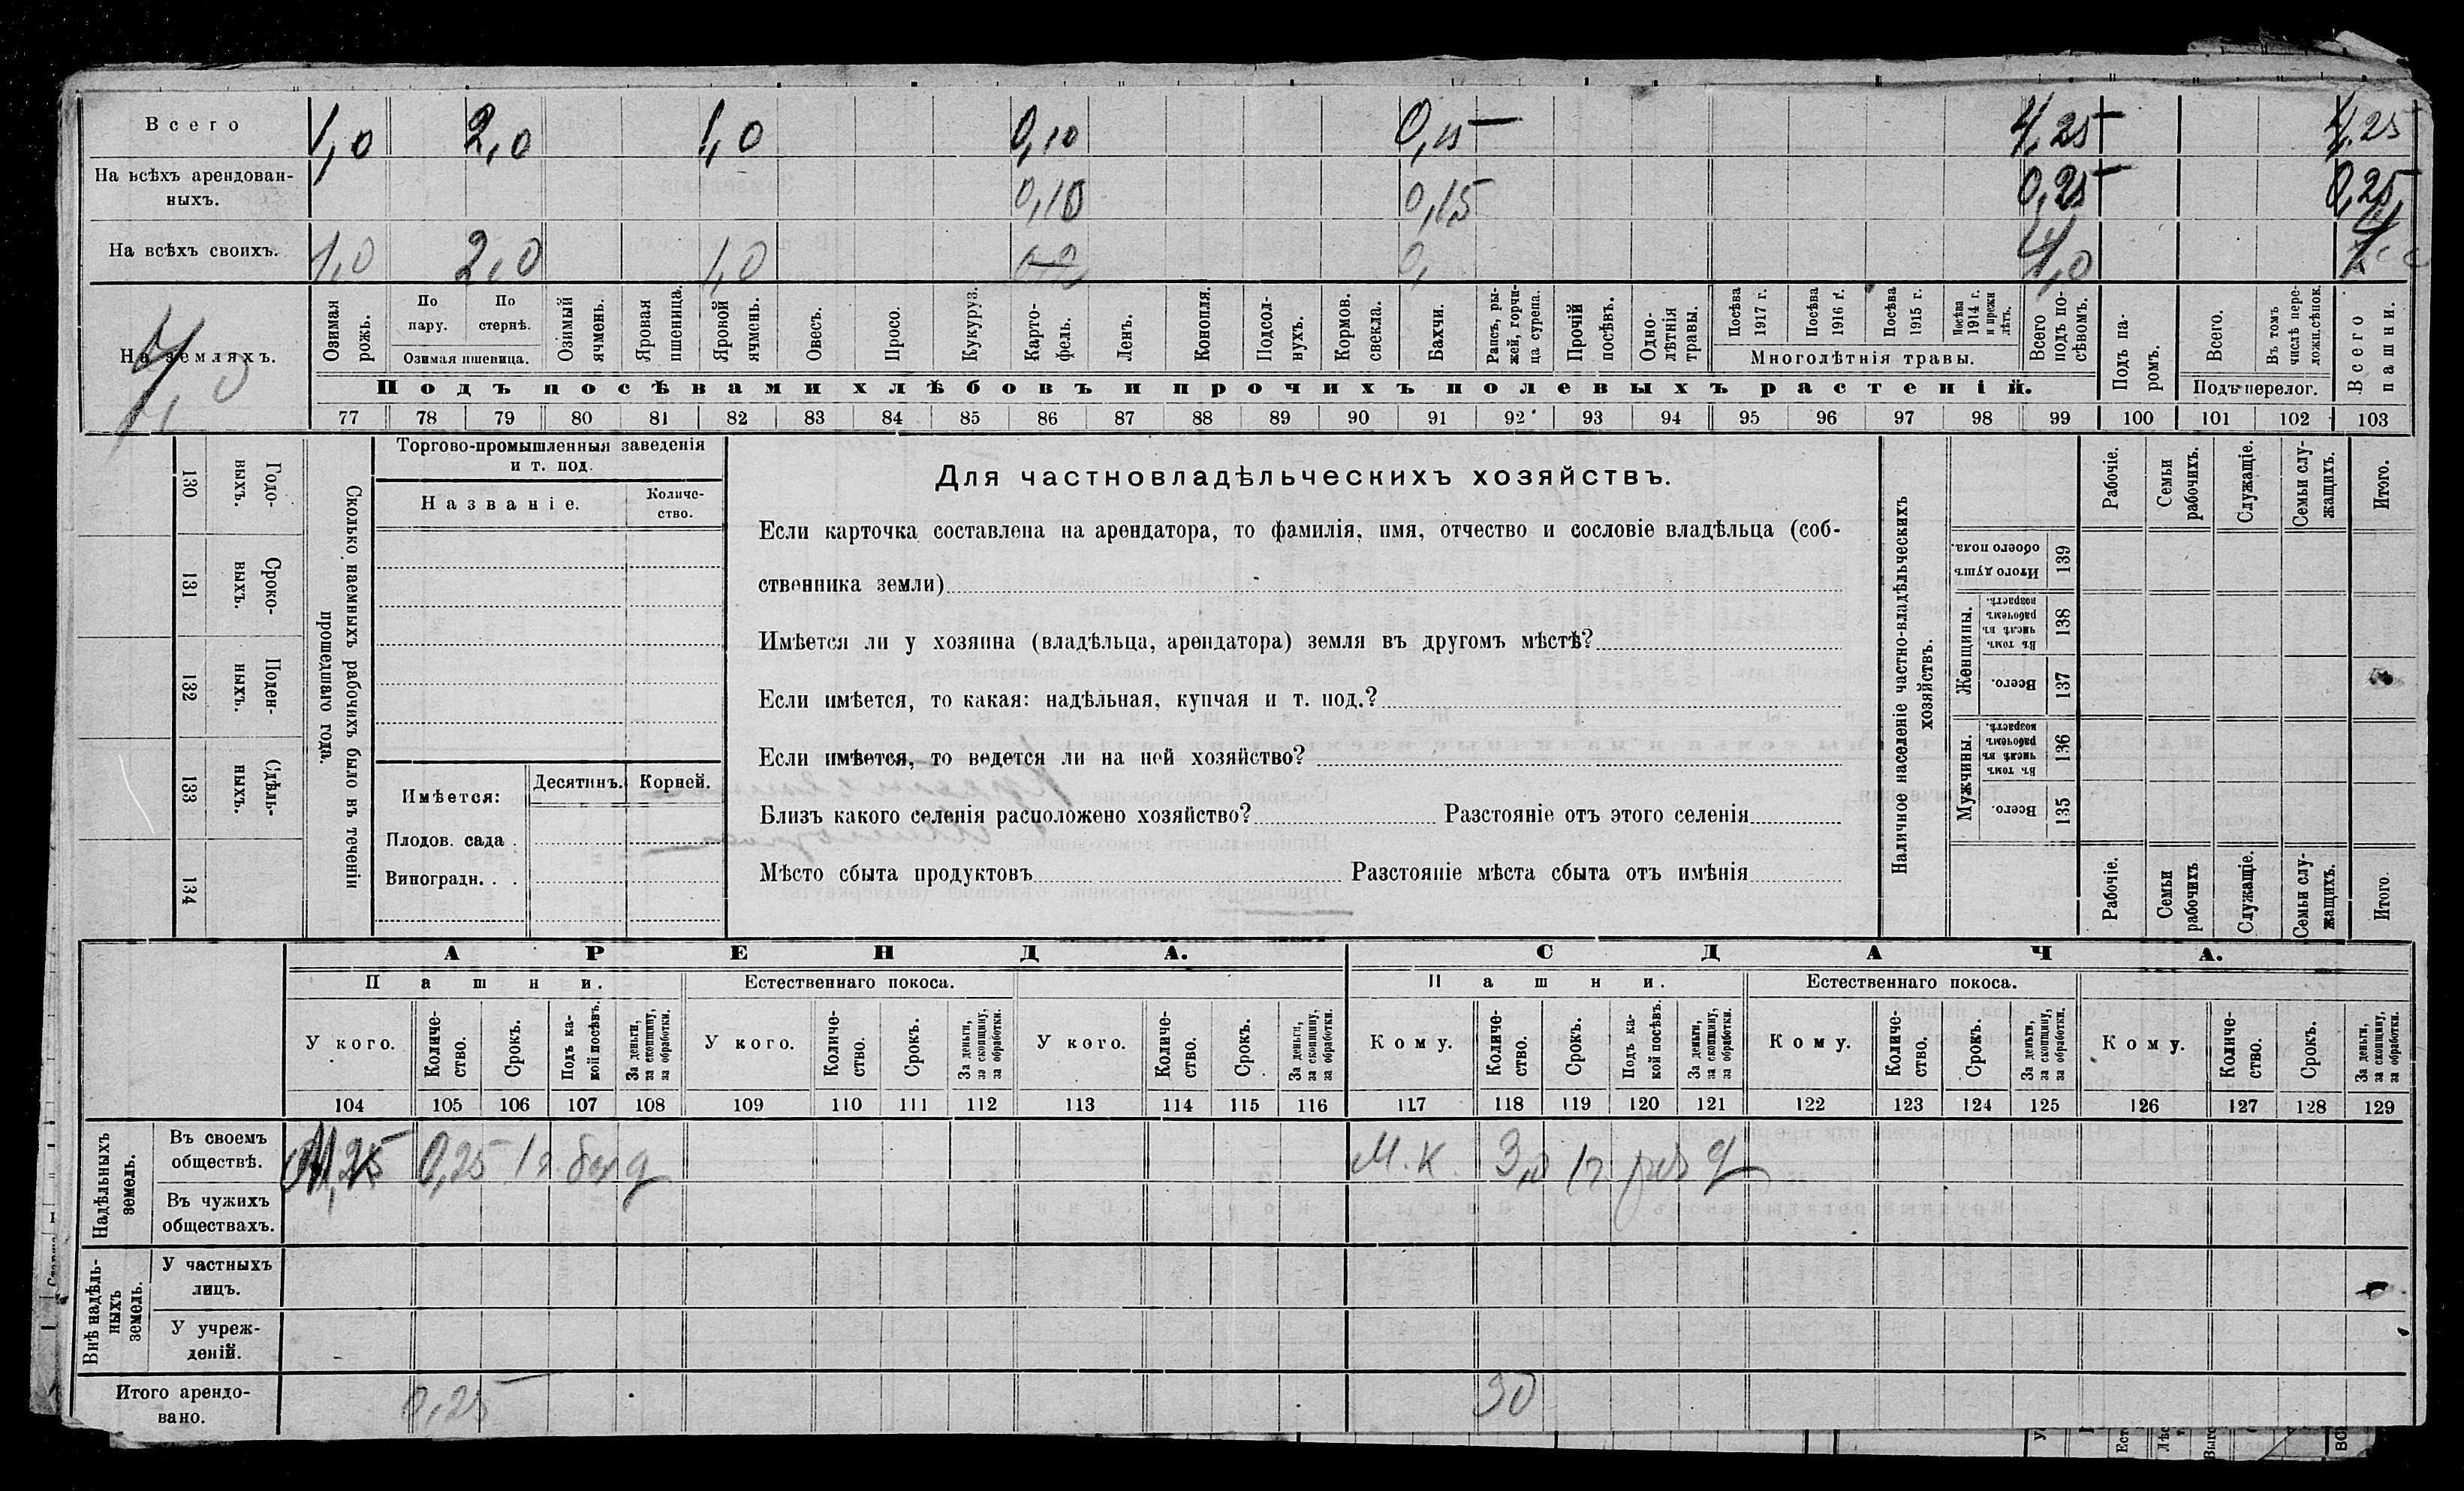 Всего 1,0 2,0 1,0 0,10 0,15 4,25 4,25
На всѣхъ арендован-
ныхъ. 0,10 0,15 0,25 0,25
На всѣхъ своихъ. 1,0 2,0 1,0 4,0
На земляхъ.
Озимая рожь.
По пару.
По стернѣ.
Озимая пшеница.
Озимый ячмень.
Яровая пшеница.
Яровой ячмень.
Овесъ.
Просо.
Кукуруз.
Карто-
фель.
Ленъ.
Конопля.
Подсол-
нухъ.
Кормов.
свекла.
Бахчи.
Рапсъ, ры-
жей, горчи-
ца сурепа.
Прочій
посѣвъ.
Одно-
лѣтнія
травы.
Посѣва
1917 г.
Посѣва
1916 г.
Посѣва
1915 г.
Посѣва
1914 г.
и прежн
лѣтъ.
Многолѣтнія травы.
Всего
подъ по-
сѣвомъ.
Подъ па-
ромъ.
Всего.
Въ томъ
числѣ пере-
ложн.сѣнок.
Подъ перелог.
Всего
пашни.
Подъ посѣвами хлѣбовъ и прочихъ полевыхъ растеній.
77 78 79 80 81 82 83 84 85 86 87 88 89 90 91 92 93 94 95 96 97 98 99 100 101 102 103
Сколько наемныхъ рабочихъ было въ теченіи
прошедшаго года.
Годо-
выхъ.
130
Сроко-
выхъ.
131
Поден-
ныхъ.
132
Сдѣль-
ныхъ.
133
134
Торгово-промышленныя заведенія
и т. под.
Названіе.
Количе-
ство.
Имѣется:
Десятинъ.
Корней.
Плодов. сада .
Виноградн. . .
Для частновладѣльческихъ хозяйствъ.
Если карточка составлена на арендатора, то фамилія, имя, отчество и сословіе владѣльца (соб-
ственника земли)
Имѣется ли у хозяина (владѣльца, арендатора) земля въ другомъ мѣстѣ?
Если имѣется, то какая: надѣльная, купчая и т. под.?
Если имѣется, то ведется ли на ней хозяйство?
Близъ какого селенія расположено хозяйство? Разстояніе отъ этого селенія
Мѣсто сбыта продуктовъ Разстояніе мѣста сбыта отъ имѣнія
Наличное населеніе частно-владѣльческихъ
хозяйствъ.
Рабочіе.
Семьи
рабочихъ.
Служащіе.
Семьи слу-
жащихъ.
Итого.
Итого душъ
обоего пола.
139
Женщины.
Въ томъ
числѣ въ
рабочемъ
возрастѣ.
138
Всего.
137
Мужчины.
Въ томъ
числѣ въ
рабочемъ
возрастѣ.
136
Всего.
135
Рабочіе.
Семьи
рабочихъ
Служащіе.
Семьи слу-
жащихъ.
Итого.
АРЕНДА. СДАЧА.
Пашни. Естественнаго покоса. Пашни. Естественнаго покоса.
У кого.
Количе-
ство.
Срокъ.
Подъ ка-
кой посѣвъ.
За деньги,
за скопщину,
за обработки.
У кого.
Количе-
ство.
Срокъ.
За деньги,
за скопщину,
за обработки.
У кого.
Количе-
ство.
Срокъ.
За деньги,
за скопщину,
за обработки.
Кому.
Количе-
ство.
Срокъ.
Подъ ка-
кой посѣвъ.
За деньги,
за скопщину,
за обработки.
Кому.
Количе-
ство.
Срокъ.
За деньги,
за скопщину,
за обработки.
Кому.
Количе-
ство.
Срокъ.
За деньги,
за скопщину,
за обработки.
104 105 106 107 108 109 110 111 112 113 114 115 116 117 118 119 120 121 122 123 124 125 126 127 128 129
Надѣльныхъ
земель.
Въ своемъ
обществѣ. 0,25 М. К.
Въ чужихъ
обществахъ.
Внѣ надѣль-
ныхъ
земель.
У частныхъ
лицъ.
У учреж-
деній.
Итого арендо-
вано. 0,25 30